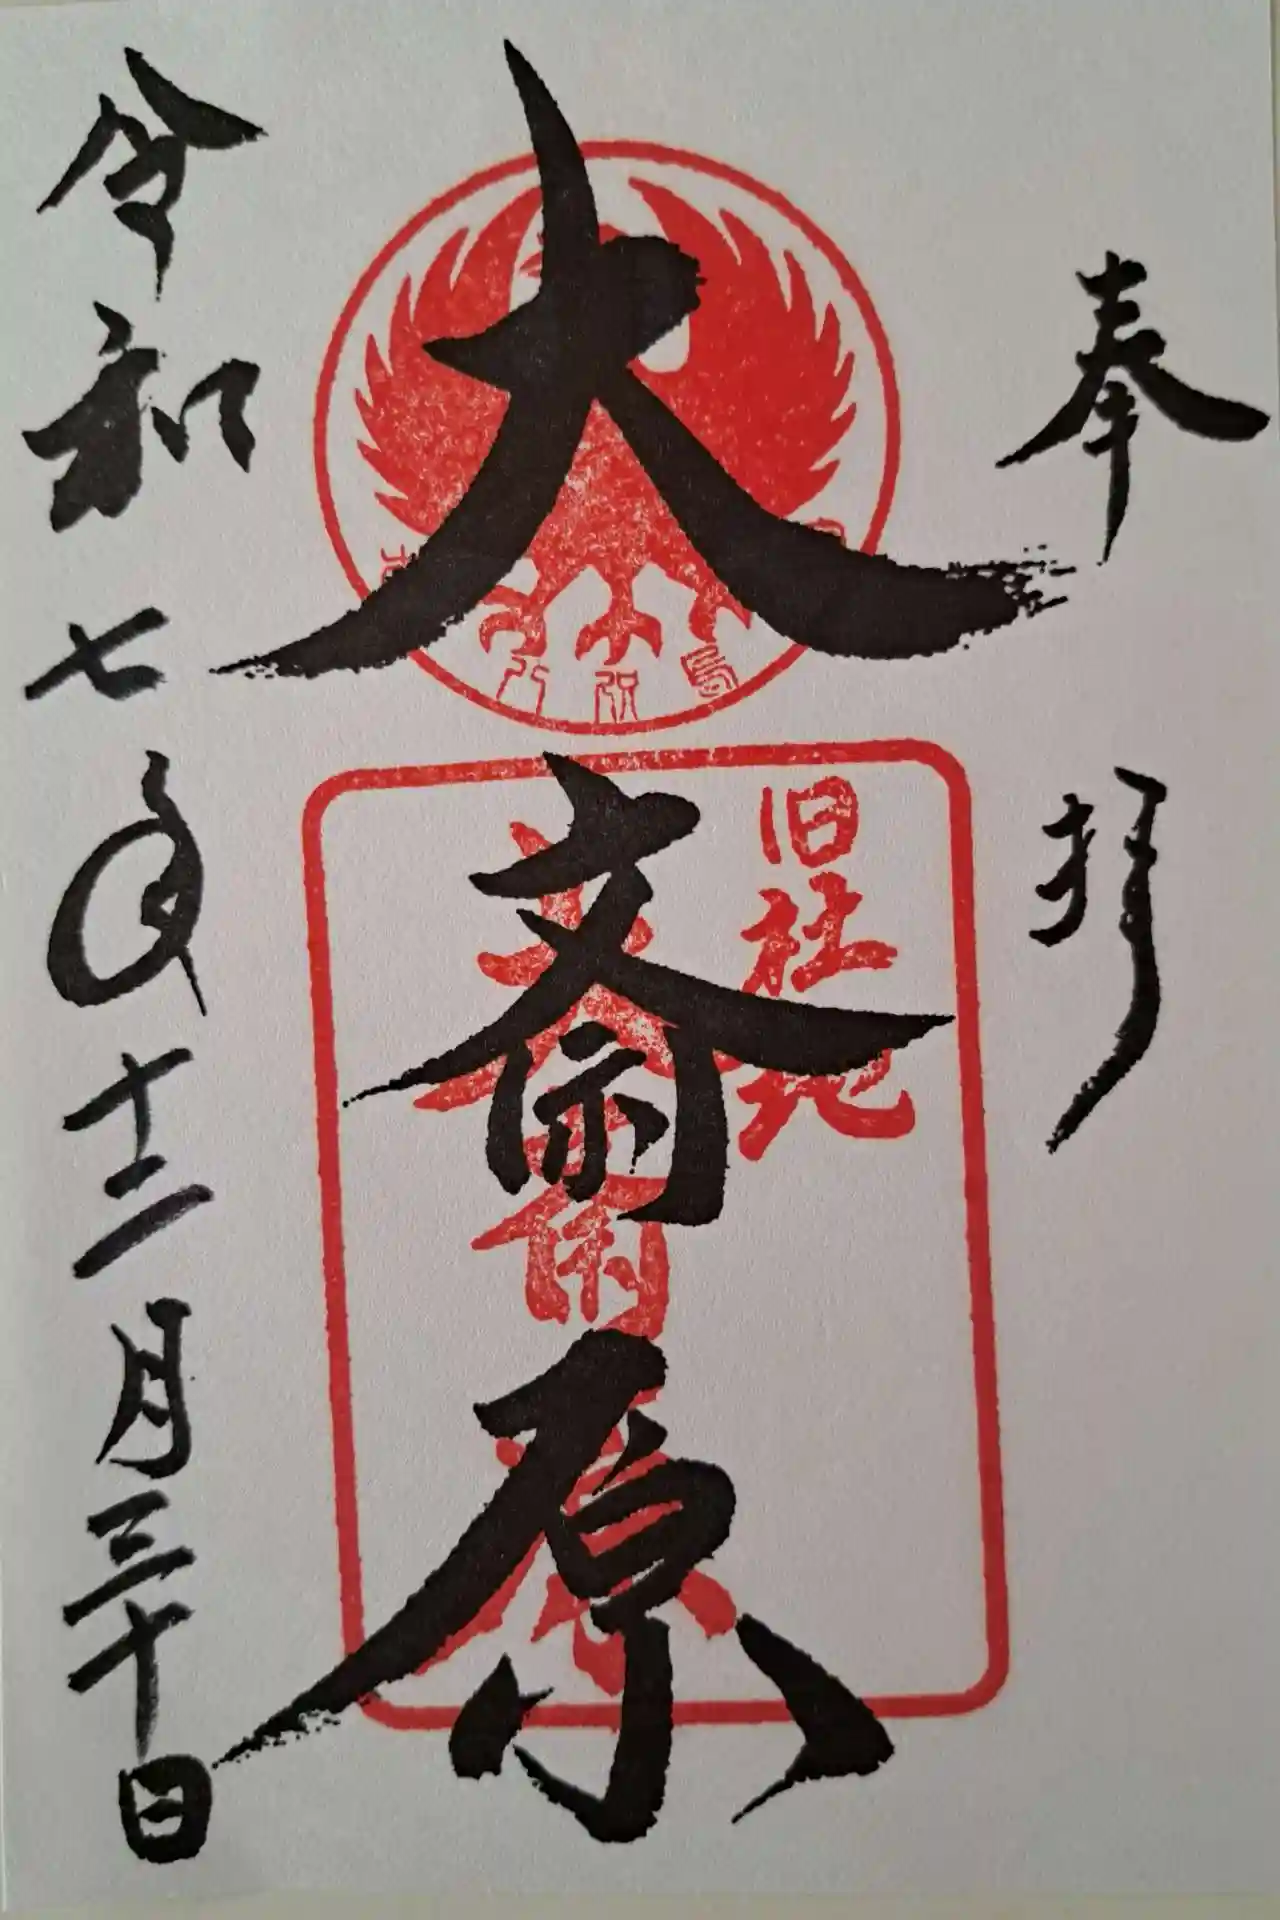 奉拝
大斎原
旧社地
大斎原
令和七年十二月三十日